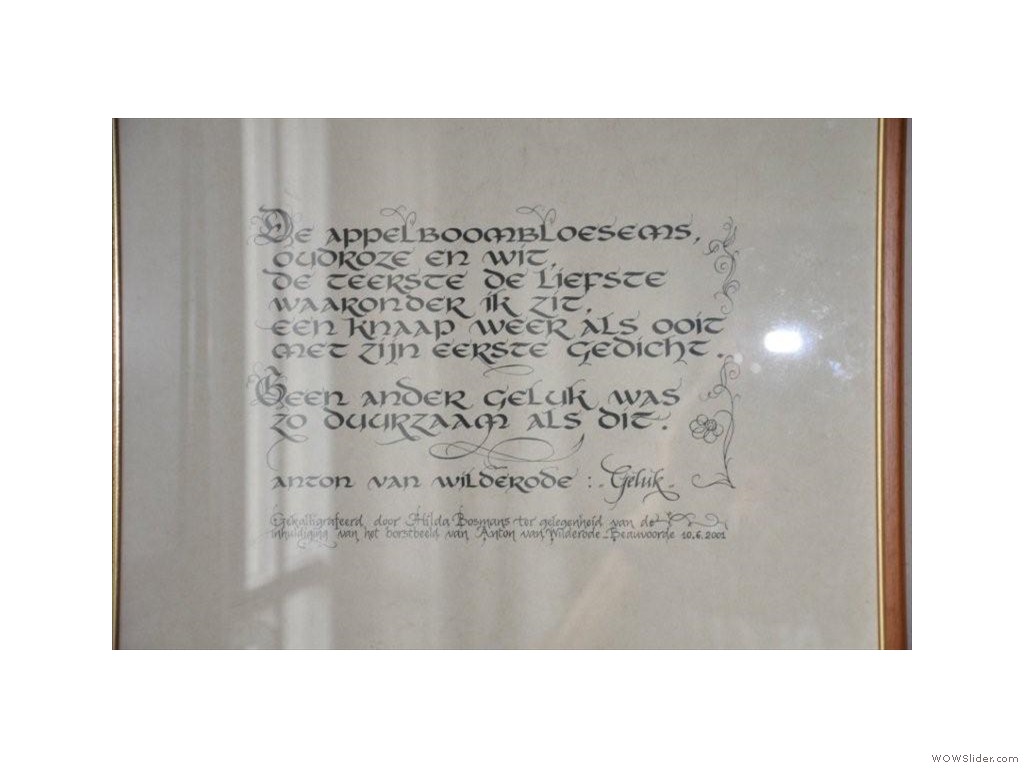 De appelboombloesems,
oudroze en wit,
de teerste de liefste
waaronder ik zit,
een knaap weer als ooit
met zijn eerste gedicht.
Geen ander geluk was
zo duurzaam als dit.
anton van wilderode : "Geluk"
Gekalligrafeerd door Hilda Bosmans ter gelegenheid van de
inhuldiging van het borstbeeld van Anton van Wilderode_Beauvoorde 10.6.2001
WOWSlider.com